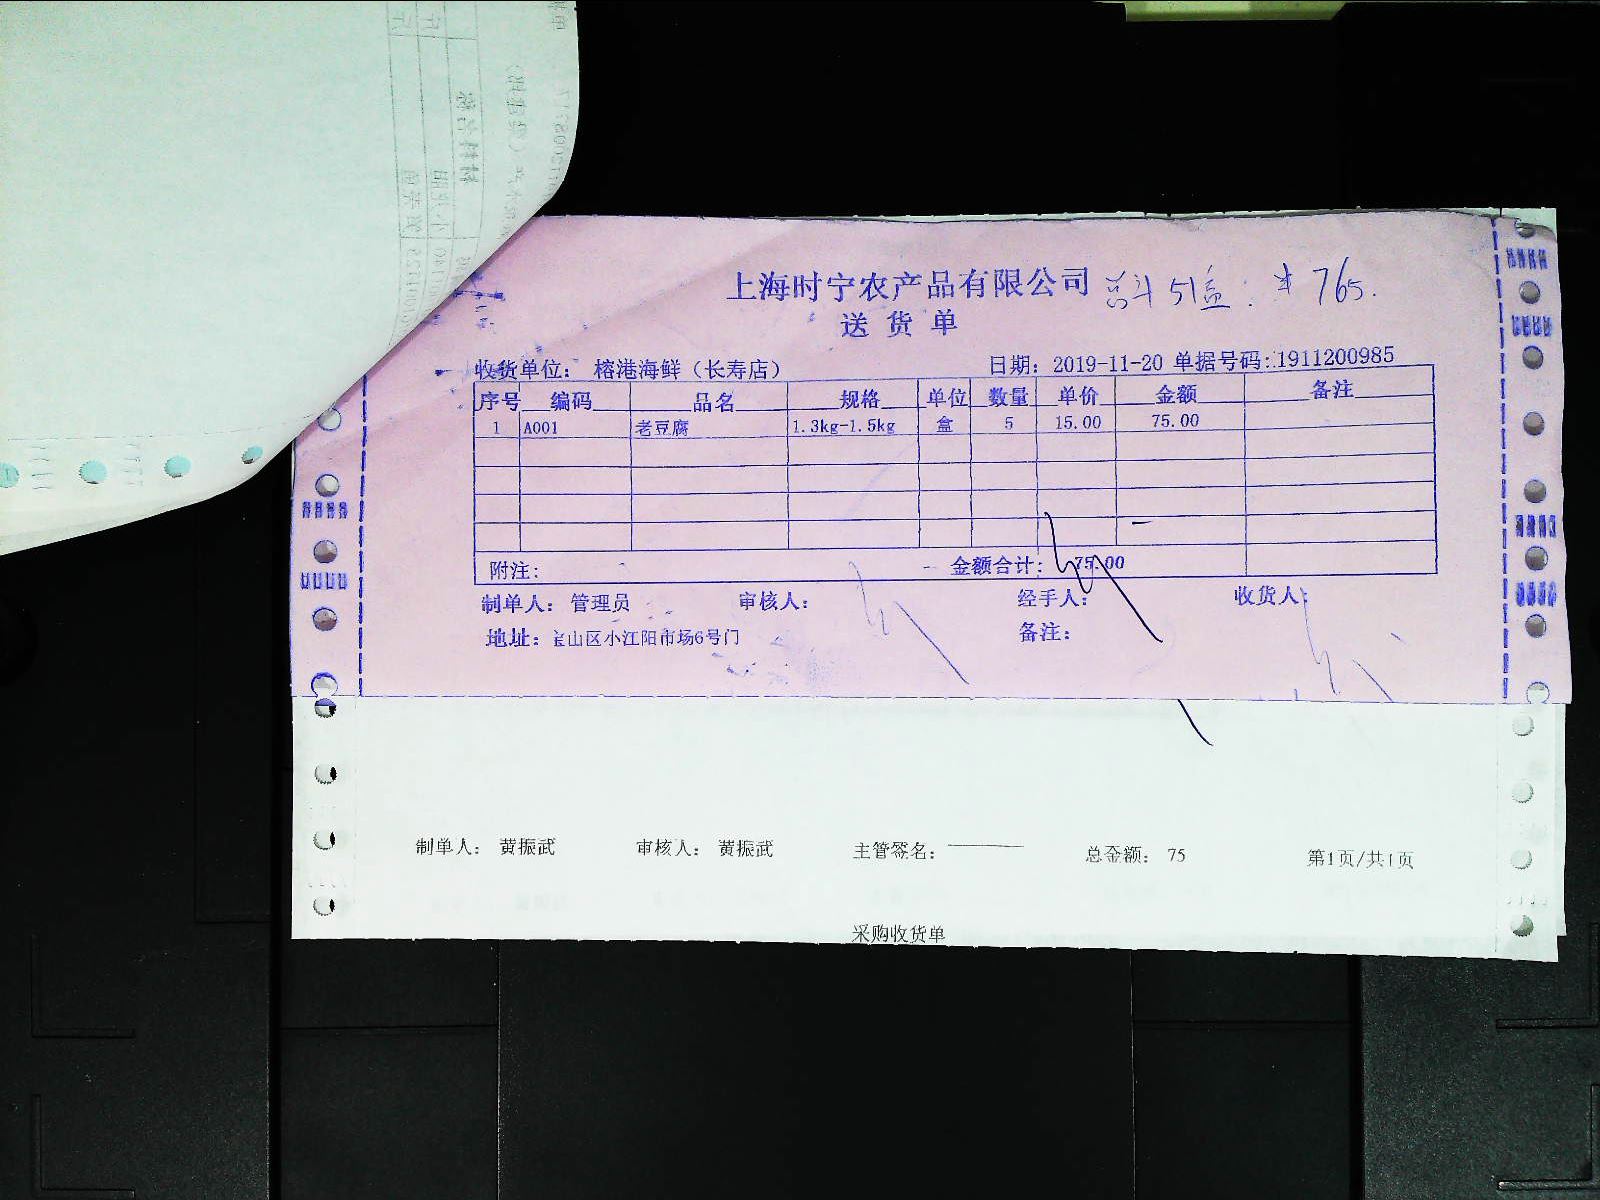 上海时宁农产品有限公司 总计51盒: ¥765.
送货单
收货单位: 榕港海鲜(长寿店) 日期: 2019-11-20 单据号码: 1911200985
序号 编码 品名 规格 单位 数量 单价 金额 备注
1 A001 老豆腐 1.3kg-1.5kg 盒 5 15.00 75.00
附注: 金额合计: 75.00
制单人: 管理员 审核人: 经手人: 收货人:
地址: 宝山区小江阳市场6号门 备注:
制单人: 黄振武 审核人: 黄振武 主管签名: 总金额: 75 第1页/共1页
采购收货单